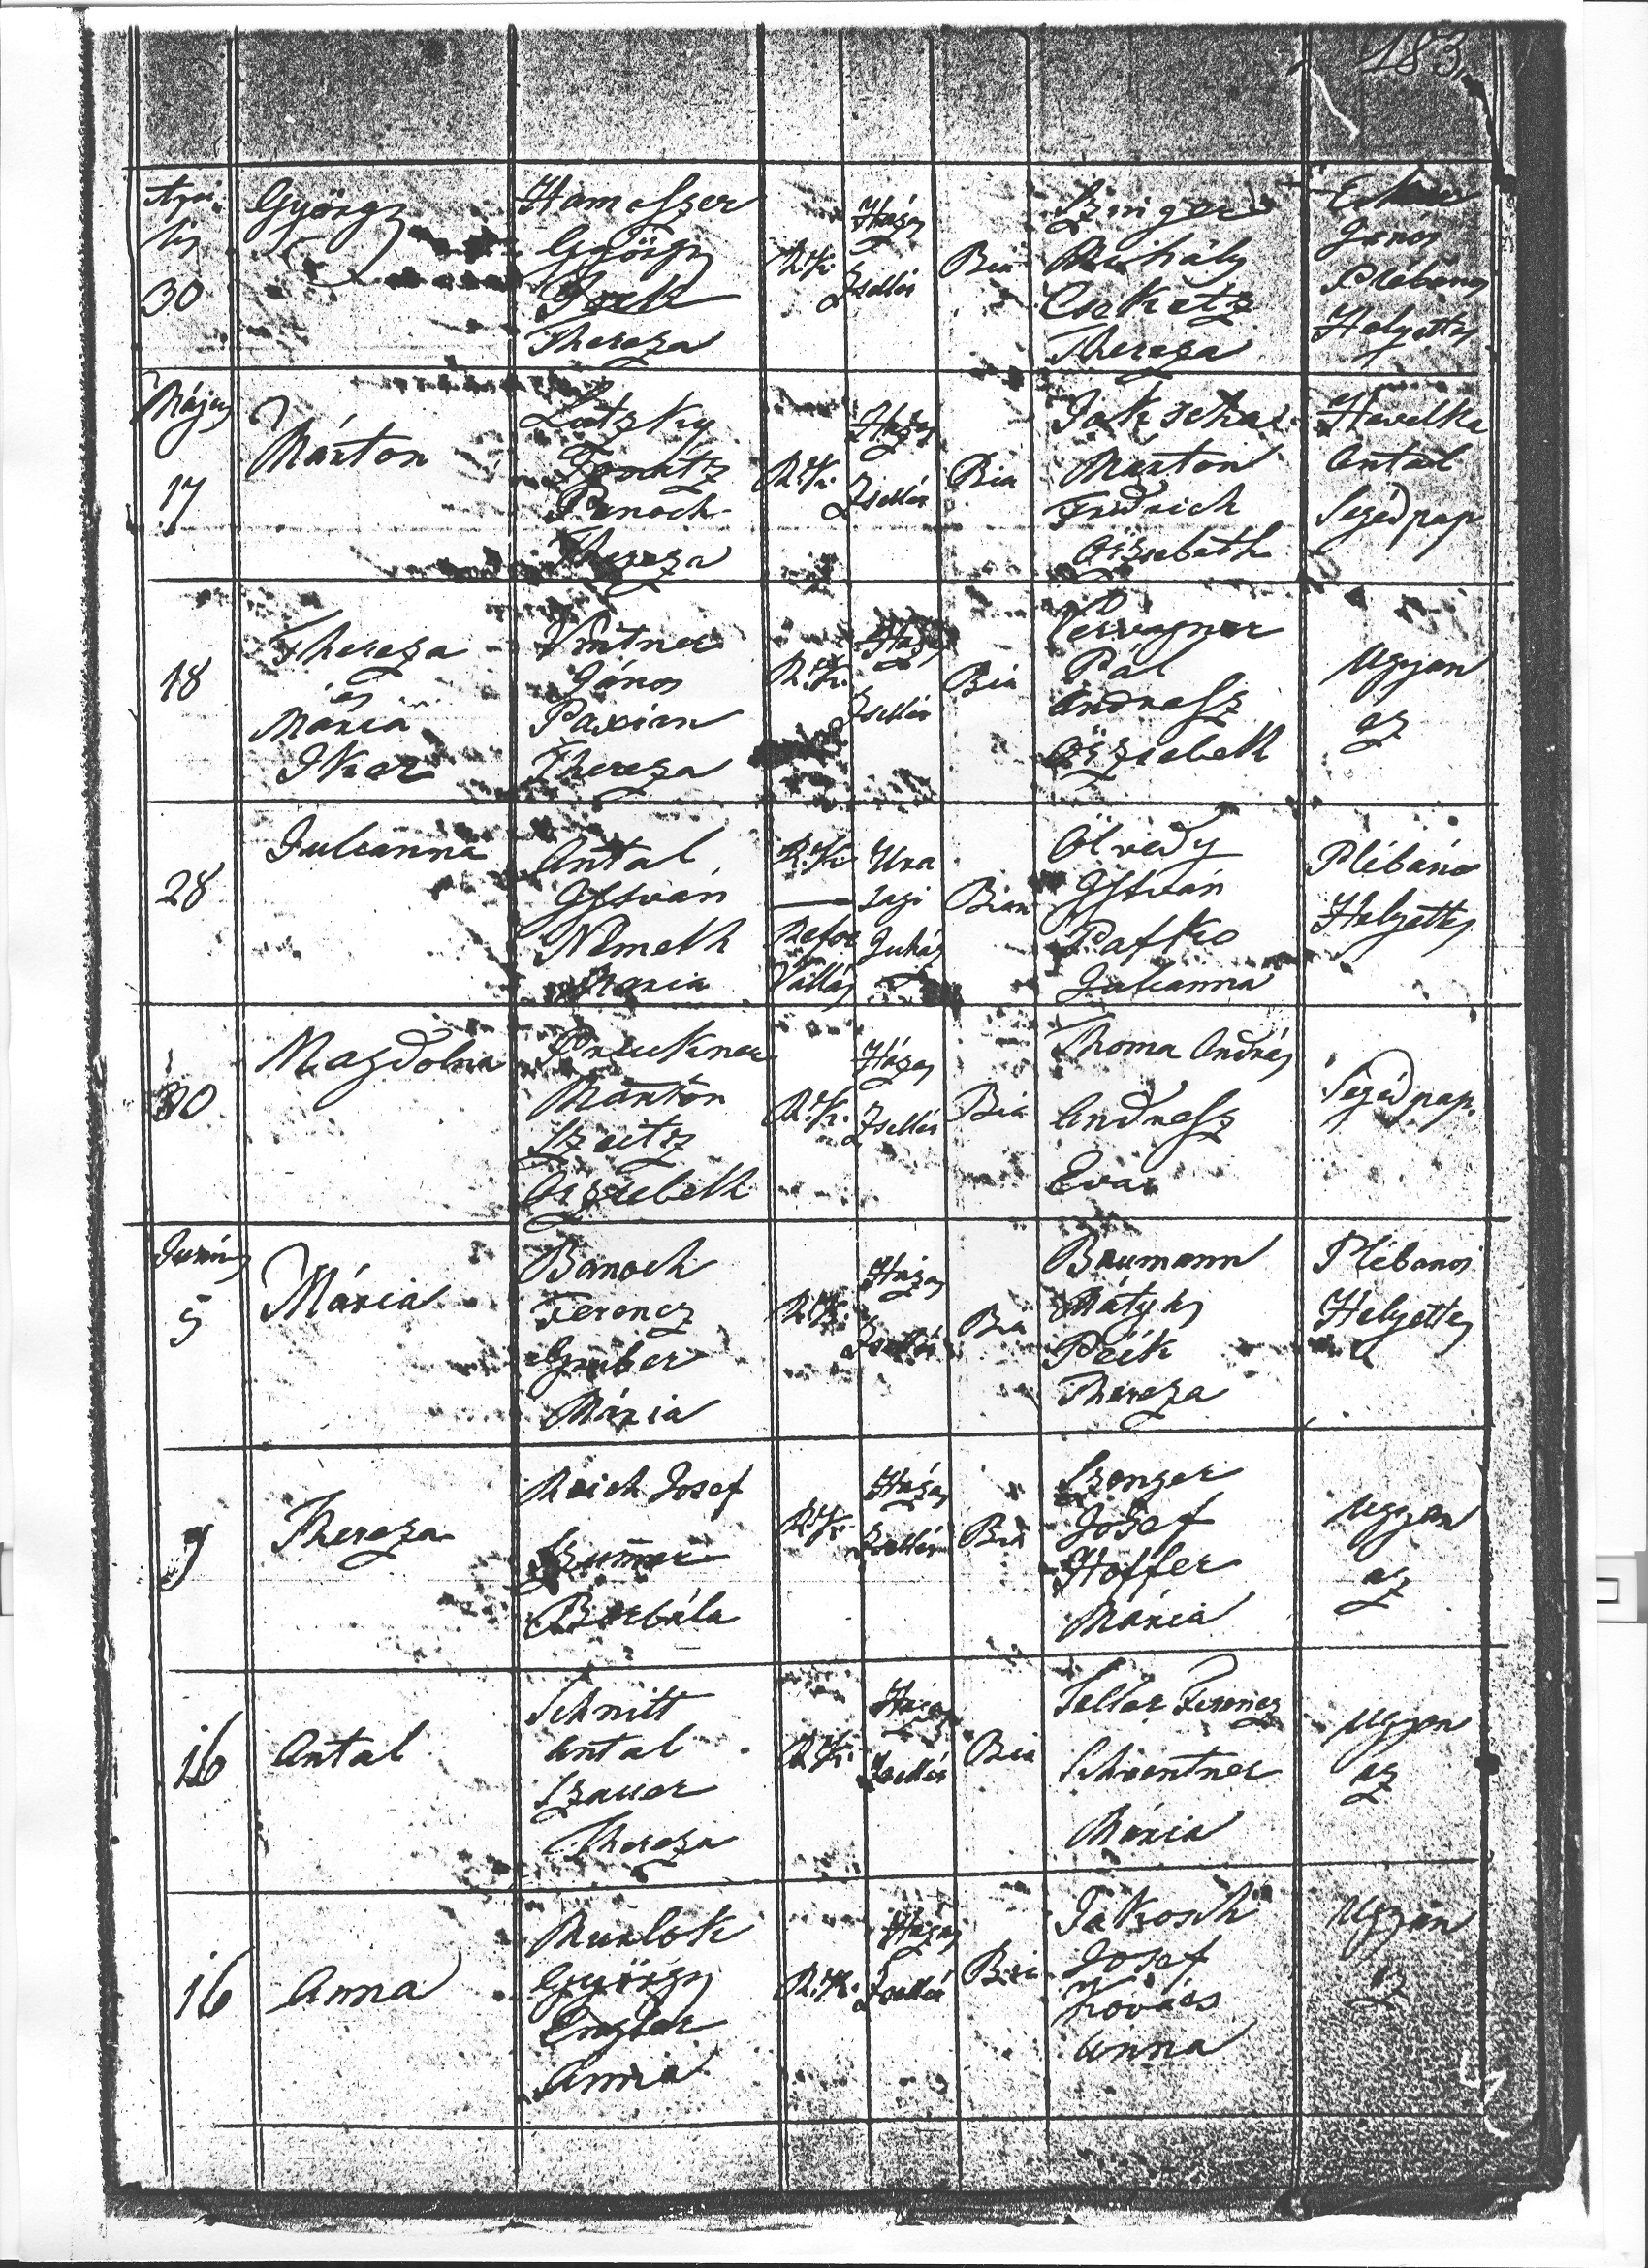 183
Ápri-
lis
30
György
Hamoszer
György
Thereza
R.K.
Házas
Zsellér
Bia
Szinger
Mihály
Thereza
János
Plébános
Helyettes
Május
17
Márton
Panoch
Thereza
R.K.
Házas
Zsellér
Bia
Jakscha
Márton
Fridrich
Örzsebeth
Havelka
Antal
Segéd pap
18
Thereza
és
Mária
Iker
János
Paxian
Thereza
R.K.
Házas
Zsellér
Bia
Pál
Andresz
Örzsebeth
Ugyan
az
28
Julianna
Antal
István
Németh
Maria
R.K.
Refor
Vallás
Ura
sagi
Juhás
Bian
Ölvedy
István
Pafko
Julianna
Plébános
Helyettes
30
Magdolna
Pruckner
Márton
Szeitz
Örzsebeth
R.K.
Házas
Zsellér
Bia
Thoma András
Andresz
Éva
Segéd pap.
Junius
5
Mária
Banoch
Ferencz
Gruber
Mária
R.K.
Házas
Zsellér
Bia
Baumann
Mátyás
Peik
Thereza
Plébanos
Helyettes
9
Thereza
Reich Josef
Borbála
R.K.
Házas
Zsellér
Bia
Szenger
Josef
Hoffer
Mária
Ugyan
az
16
Antal
Schnitt
Antal
Szauer
Thereza
R.K.
Házas
Zsellér
Bia
Feller Ferencz
Schventner
Mária
Ugyan
az
16
Anna
Murlok
György
Engler
Anna
R.K.
Házas
Zsellér
Bia
Jakosch
Josef
Kovács
Anna
Ugyan
az